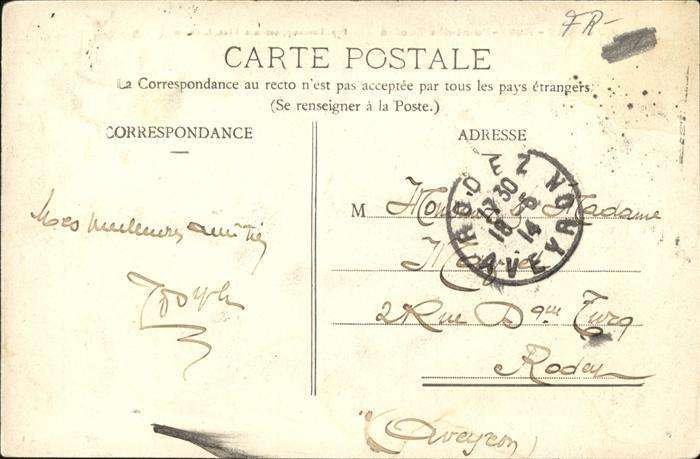 FR-
CARTE POSTALE
La Correspondance au recto n'est pas acceptée par tous les pays étrangers
(Se renseigner à la Poste.)
CORRESPONDANCE
Mes meilleures amitiés
ADRESSE
RODEZ
AVEYRON
M Madame
2 Rue Dque Turq
Rodez
(Aveyron)